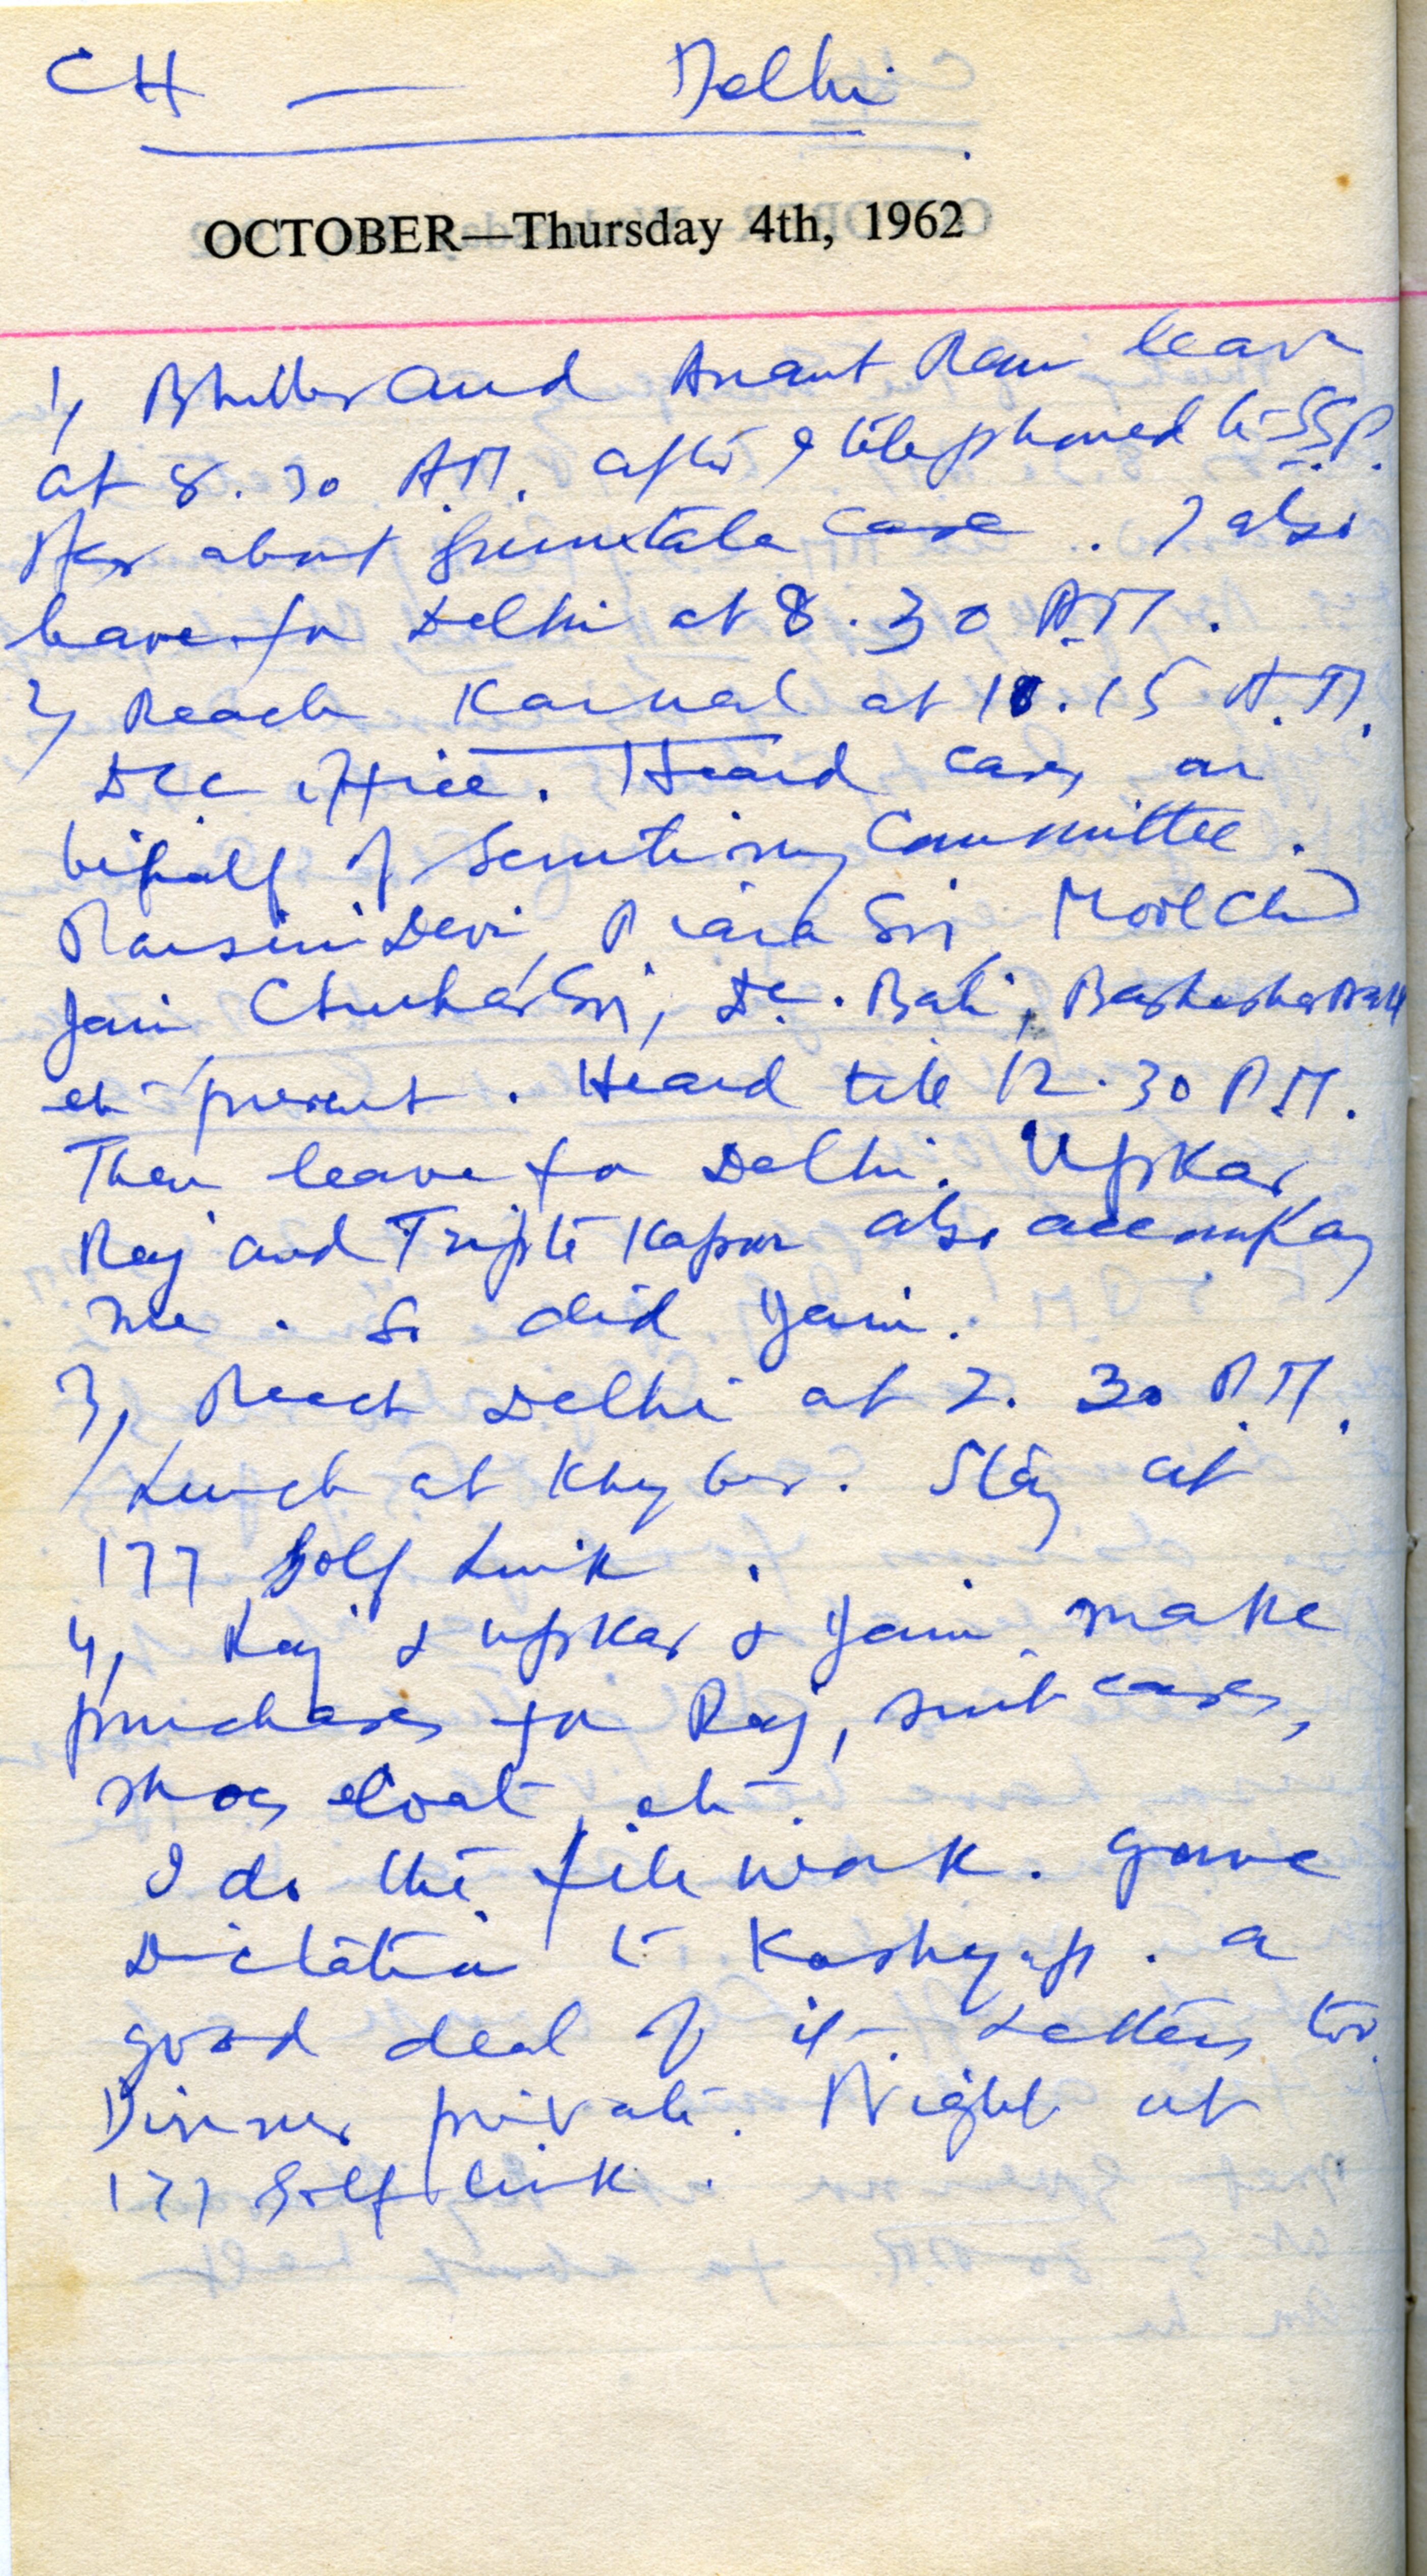 CH — Delhi
OCTOBER—Thursday 4th, 1962
1, and Anant Ram leave
at 8.30 A.M. after I telephoned to SSP.
about case. I also
leave for Delhi at 8.30 A.M.
2, Reach Karnal at 10.15 A.M.
DCC office. Heard cases on
behalf of Scrutiny Committee.
Devi, Piara Sn, Mool Chd
Jain Chuhar Sn, Dr. Bali,
etc present. Heard till 12.30 P.M.
Then leave for Delhi. Upkar,
Raj and Tripti Kapur also accompany
me. So did Jain.
3, Reach Delhi at 2.30 P.M.
Lunch at Khyber. Stay at
177 Golf Link.
4, Raj & Upkar & Jain make
purchases for Raj, suit cases,
shoes coat, etc.
I do the file work. gave
Dictation to Kashyap. a
good deal of it. Letters too.
Dinner private. Night at
177 Golf link.